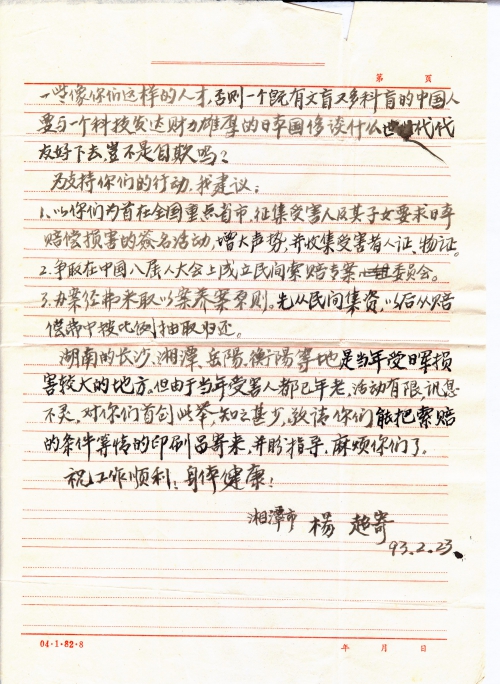 第 页
一些像你们这样的人才,否则一个既有文盲又多科盲的中国人
要与一个科技发达财力雄厚的日本国侈谈什么世世代代
友好下去岂不是自欺吗?
为支持你们的行动,我建议:
1、以你们为首在全国重点省市,征集受害人及其子女要求日本
赔偿损害的签名活动,增大声势,并收集受害者人证、物证。
2.争取在中国八届人大会上成立民间索赔专案委员会。
3.办案经费采取以案养案原则。先从民间集资,以后从赔
偿费中按比例抽取归还。
湖南的长沙、湘潭、岳陽、衡陽等地是当年受日军损
害较大的地方。但由于当年受害人都已年老,活动有限,讯息
不灵,对你们首创此举,知之甚少,敬请你们能把索赔
的条件等情的印刷品寄来,并盼指导,麻烦你们了。
祝工作顺利!身体健康!
湘潭市 楊 超寄
93.2.23.
04·1·82·8 年 月 日